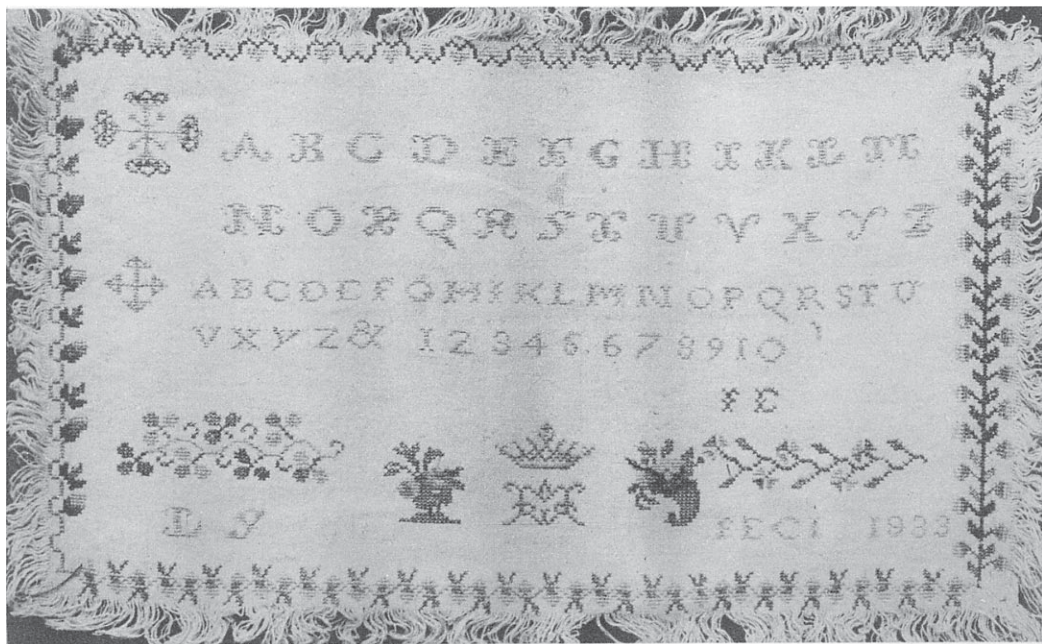 A B C D E F G H I K L M
N O P Q R S T U V X Y Z
A B C D E F G H I K L M N O P Q R S T U
V X Y Z & 1 2 3 4 5 6 7 8 9 10
F E
L Y
FECI 1833